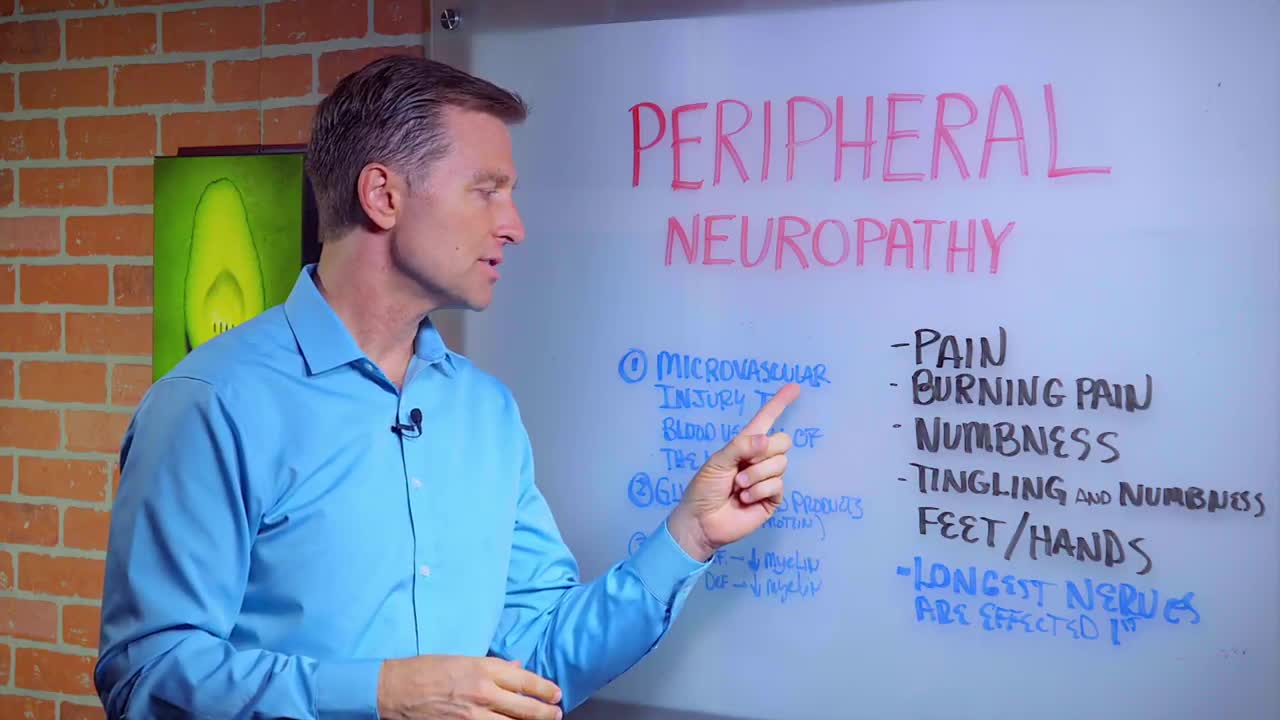 PERIPHERAL
NEUROPATHY
① MICROVASCULAR
INJURY
BLOOD OF
THE
②
PRODUCTS
→ ↓ MYELIN
DEF → ↓ MYELIN
- PAIN
- BURNING PAIN
- NUMBNESS
- TINGLING AND NUMBNESS
FEET/HANDS
- LONGEST NERVES
ARE EFFECTED 1ST